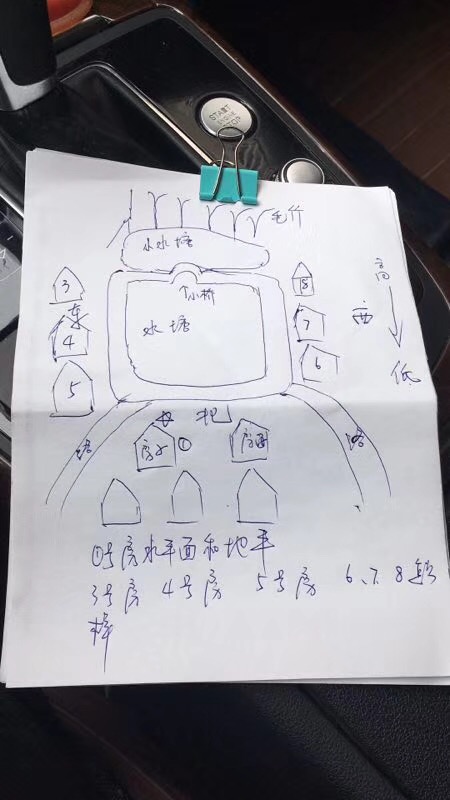 START
ENGINE
STOP
毛竹
小水塘
3
8
高
个小桥
东
西
水塘
4
7
低
5
6
北
路
房子①
房子
路
①号房水平面和地平
3号房 4号房 5号房 6、7、8号
样